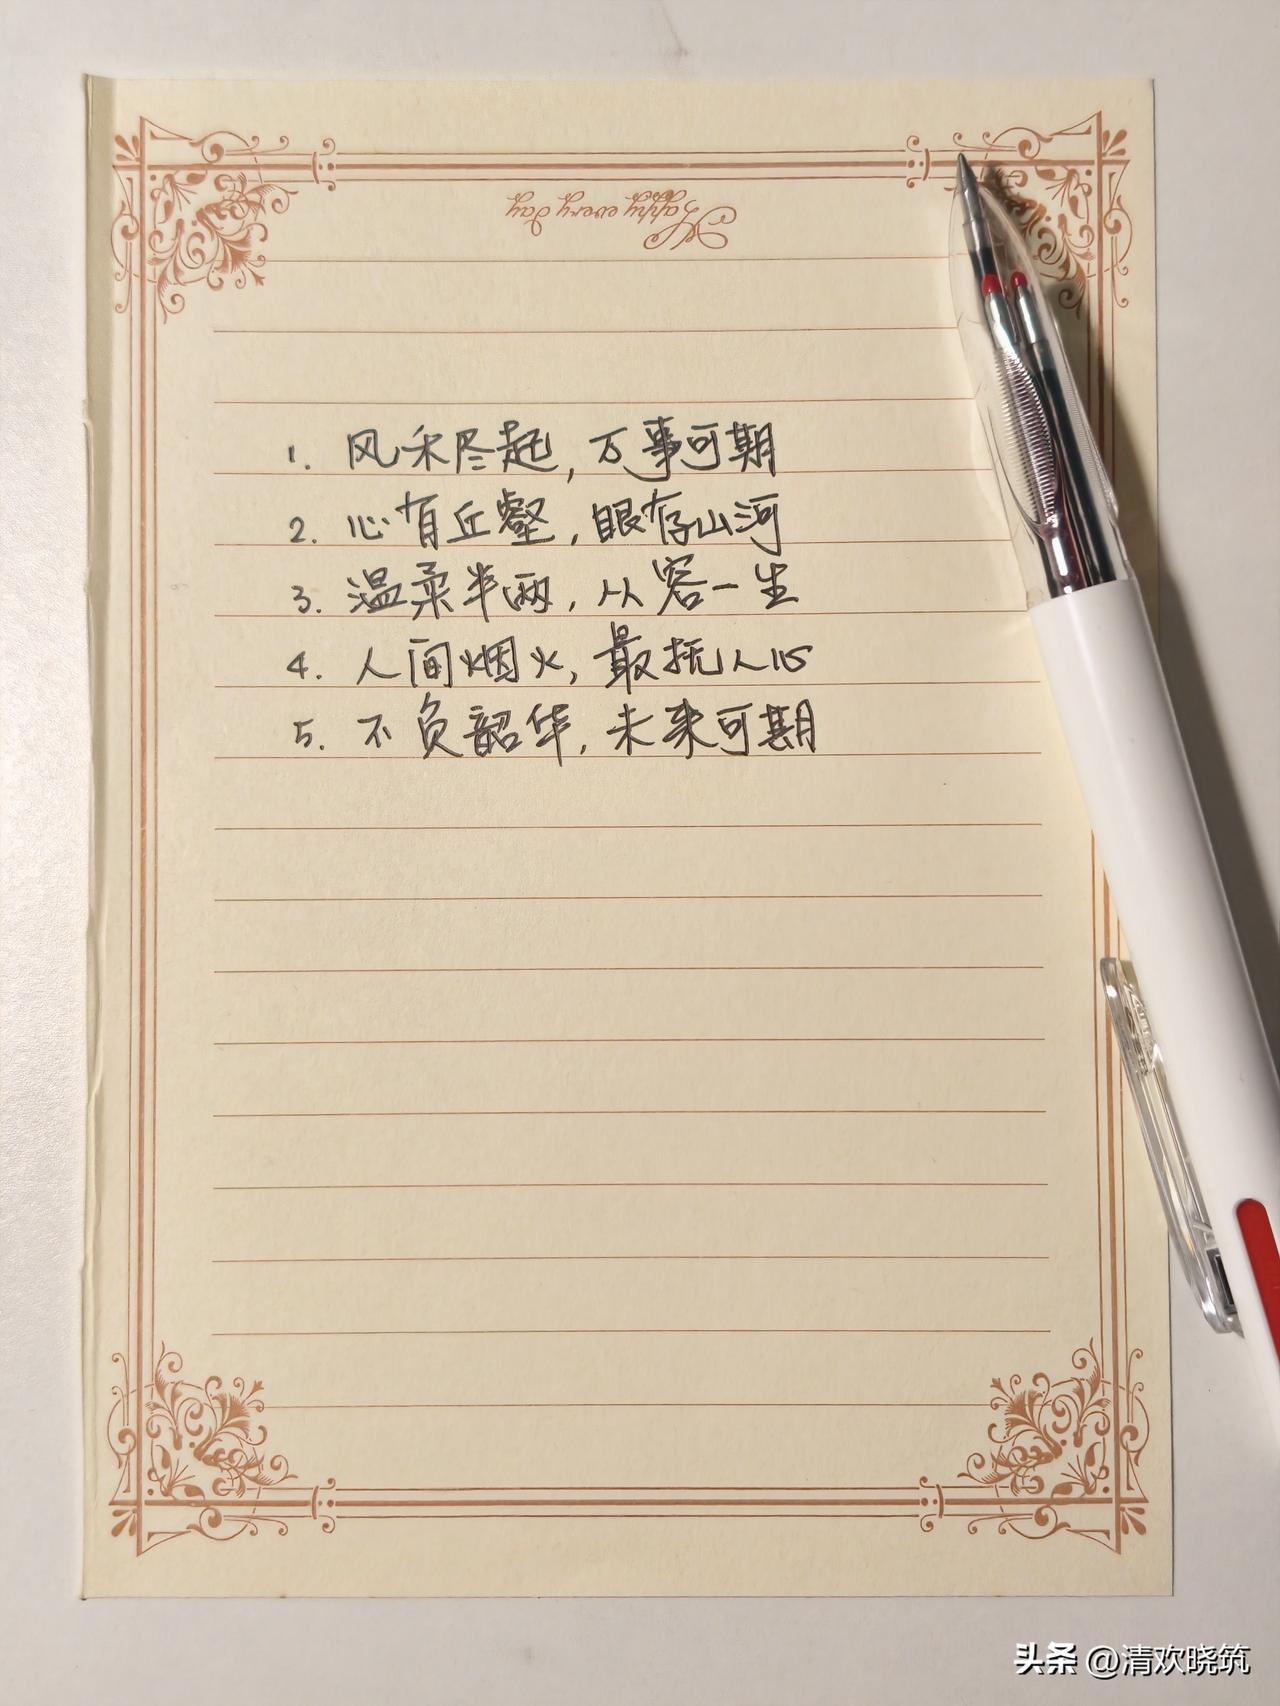 Happy every day
1. 风禾尽起，万事可期
2. 心有丘壑，眼存山河
3. 温柔半两，从容一生
4. 人间烟火，最抚人心
5. 不负韶华，未来可期
头条 @清欢晓筑